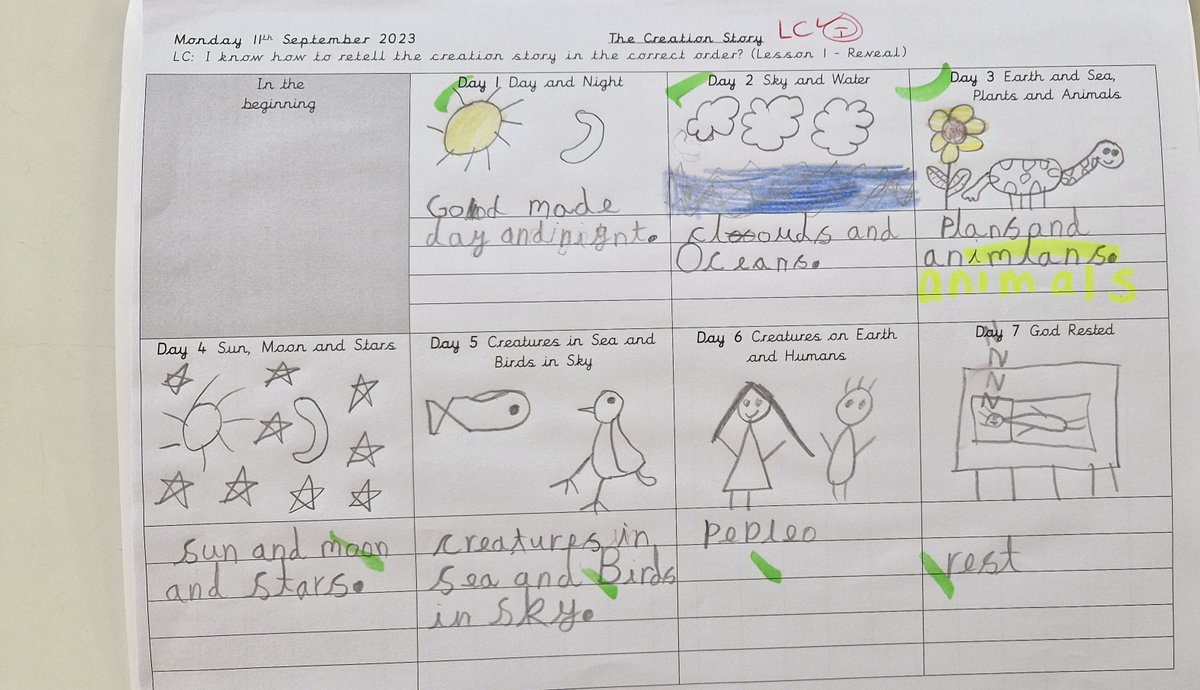 Monday 11th September 2023
The Creation Story
LC I
LC: I know how to retell the creation story in the correct order? (Lesson 1 - Reveal)
In the
beginning
Day 1 Day and Night
God made
day and night.
Day 2 Sky and Water
clouds and
Oceans.
Day 3 Earth and Sea,
Plants and Animals
Plans and
animlans.
animals
Day 4 Sun, Moon and Stars
sun and moon
and stars.
Day 5 Creatures in Sea and
Birds in Sky
creatures in
sea and Birds
in sky.
Day 6 Creatures on Earth
and Humans
pepleo
Day 7 God Rested
z
z
z
z
rest